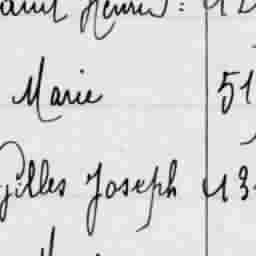 Henri : 42
Marie 51
Gilles Joseph 43